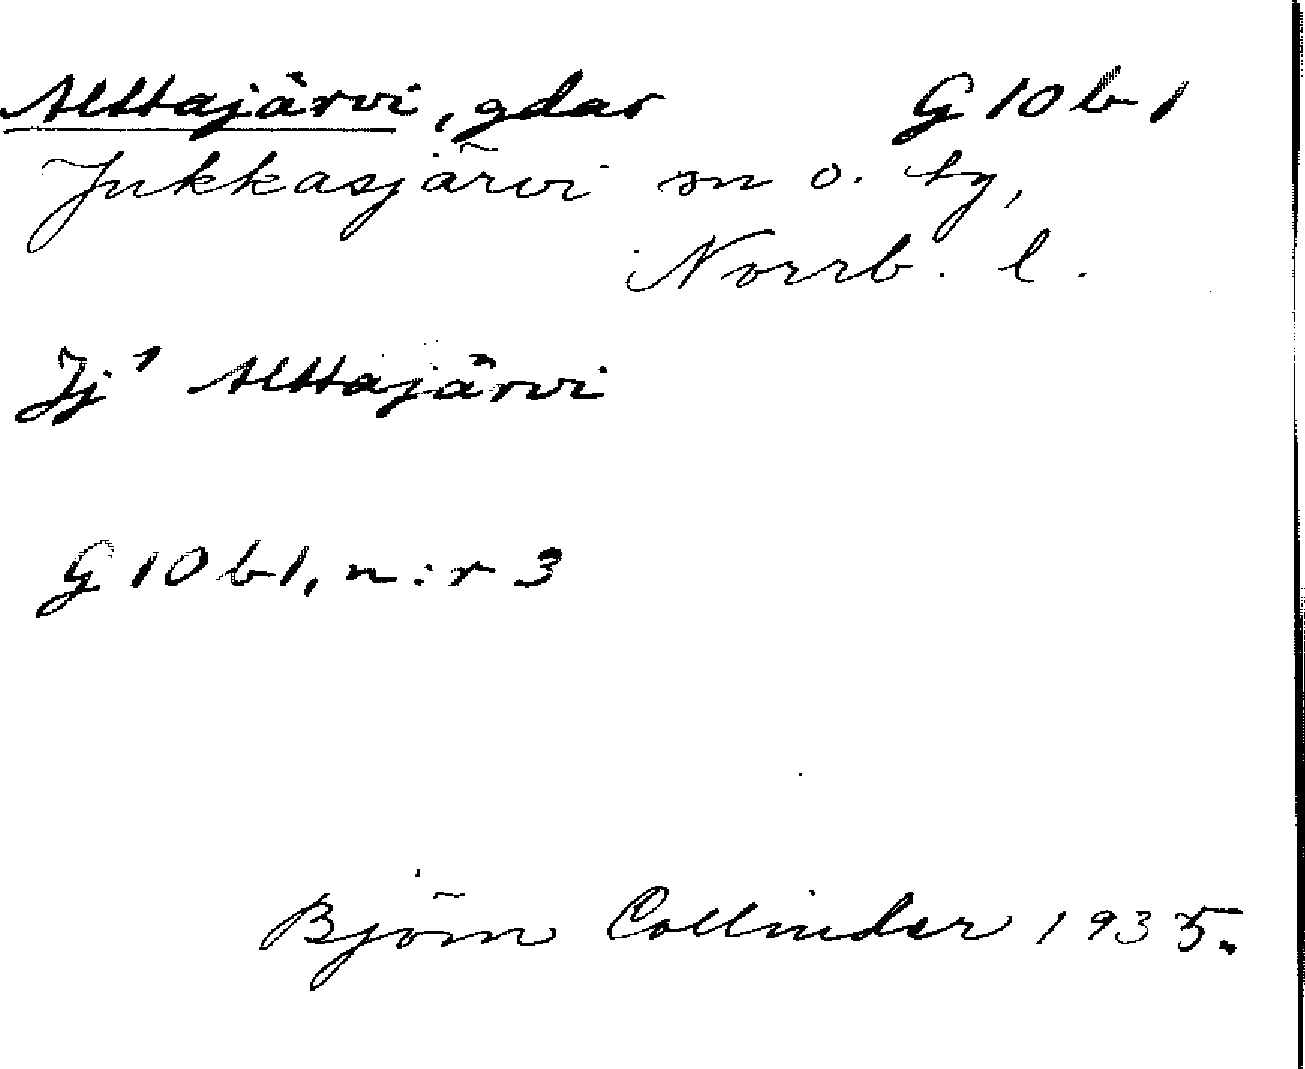 Alttajärvi, gdar G 10 b 1
Jukkasjärvi sn o. tg,
Norrb. l.
Jj¹ Alttajärvi
G 10 b 1, n:r 3
Björn Collinder 1935.